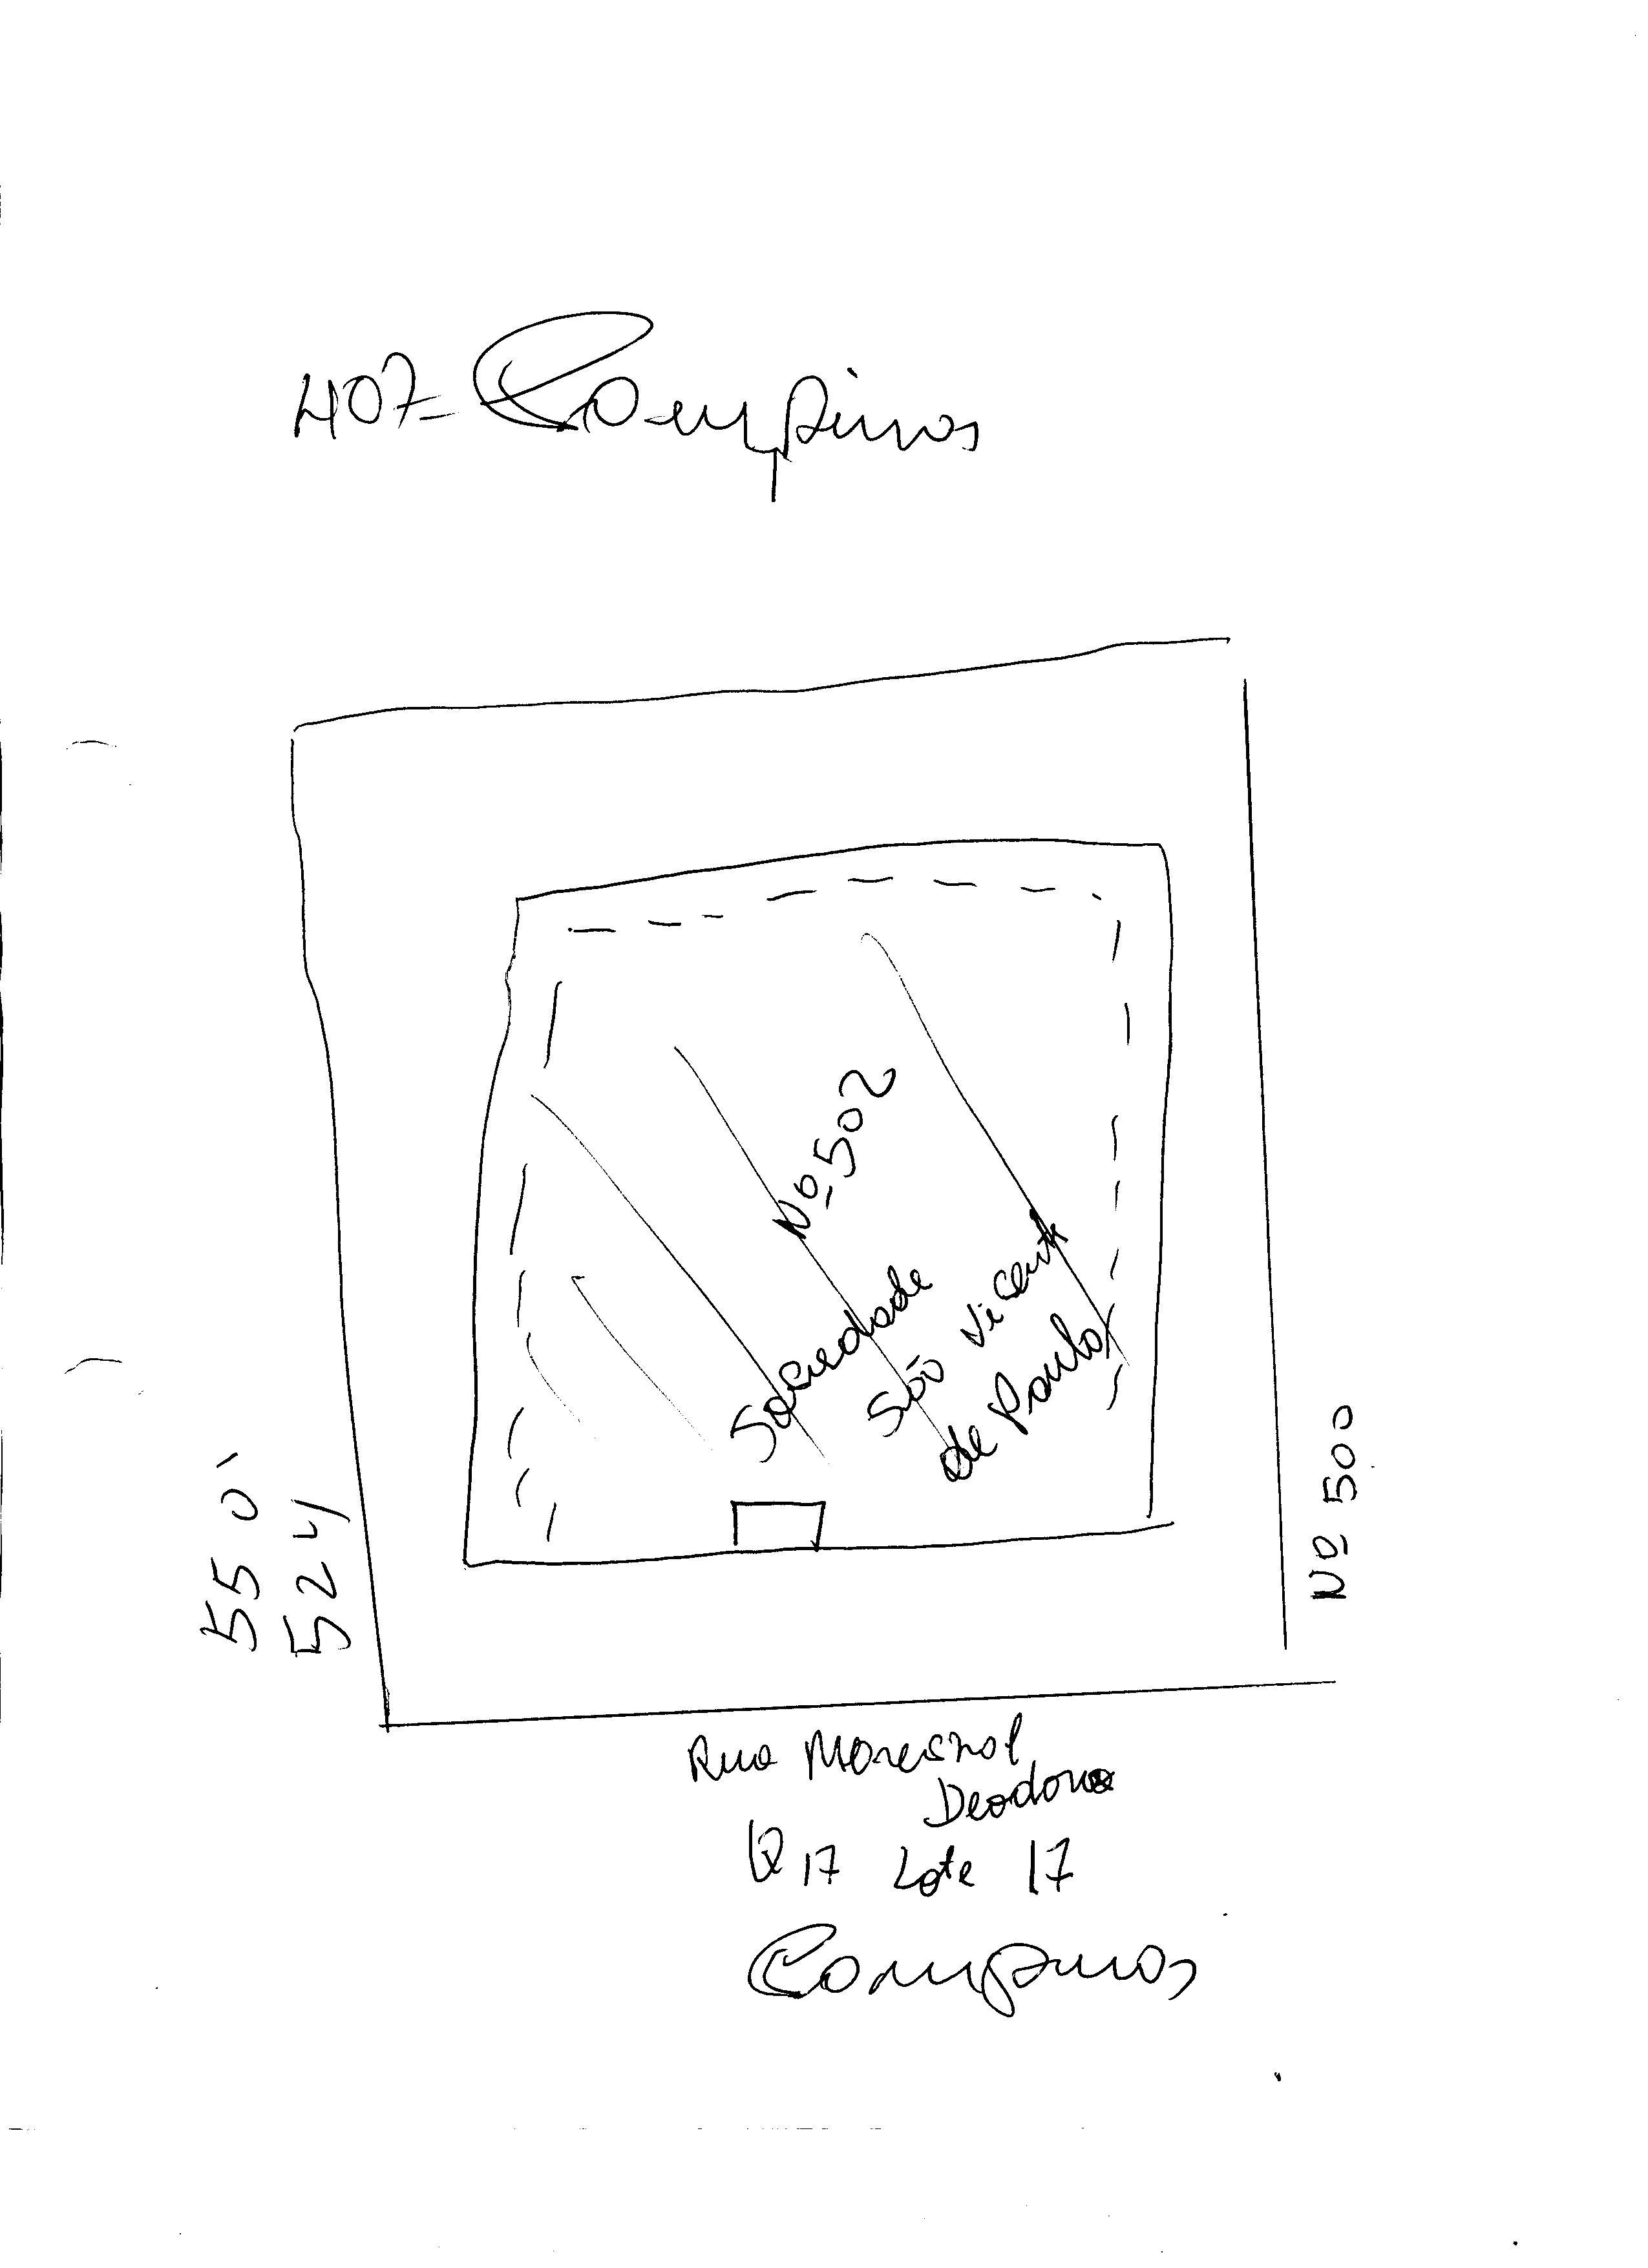 407- Campinas
Nº 502
Sociedade
São Vicente
de Paulo
550
524
Nº 500
Rua Marechal
Deodoro
Q 17 Lote 17
Campinas